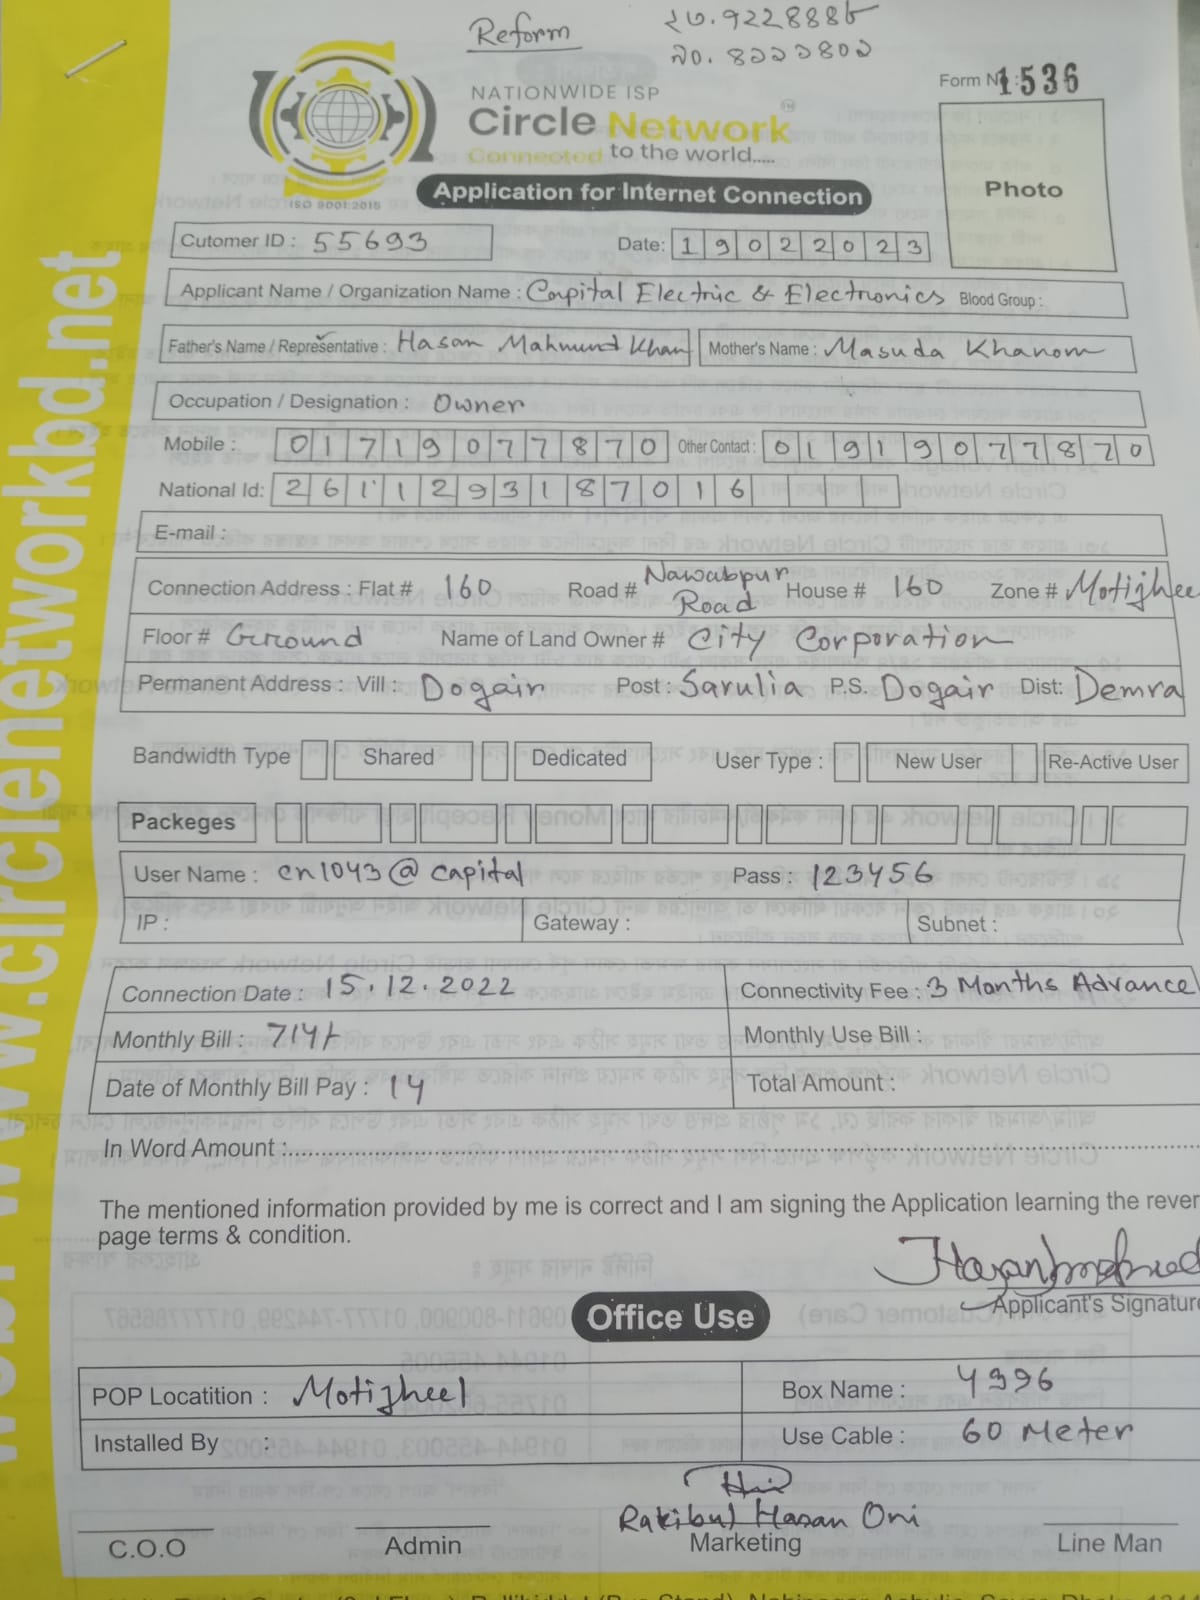 Reform
নং. ৪২২১৪০২
Form No :1536
NATIONWIDE ISP
Circle Network TM
Connected to the world.....
ISO 9001:2015
Application for Internet Connection
Photo
Cutomer ID : 55693 Date: 19022023
Applicant Name / Organization Name : Capital Electric & Electronics Blood Group :
Father's Name / Representative : Hasan Mahmund Khan Mother's Name : Masuda Khanom
Occupation / Designation : Owner
Mobile : 01719077870 Other Contact : 01919077870
National Id: 2611293187016
E-mail :
Connection Address : Flat # 160 Road # Nawabpur Road House # 160 Zone # Motijhee
Floor # Ground Name of Land Owner # City Corporation
Permanent Address : Vill : Dogair Post : Sarulia P.S. Dogair Dist: Demra
Bandwidth Type Shared Dedicated User Type : New User Re-Active User
Packeges
User Name : cn1043@capital Pass : 123456
IP : Gateway : Subnet :
Connection Date : 15.12.2022 Connectivity Fee : 3 Months Advance
Monthly Bill : 714/- Monthly Use Bill :
Date of Monthly Bill Pay : 14 Total Amount :
In Word Amount :
The mentioned information provided by me is correct and I am signing the Application learning the rever
page terms & condition.
Applicant's Signature
Office Use
POP Locatition : Motijheel Box Name : 4996
Installed By : Use Cable : 60 Meter
Rakibul Hasan Oni
C.O.O Admin Marketing Line Man
www.circlenetworkbd.net